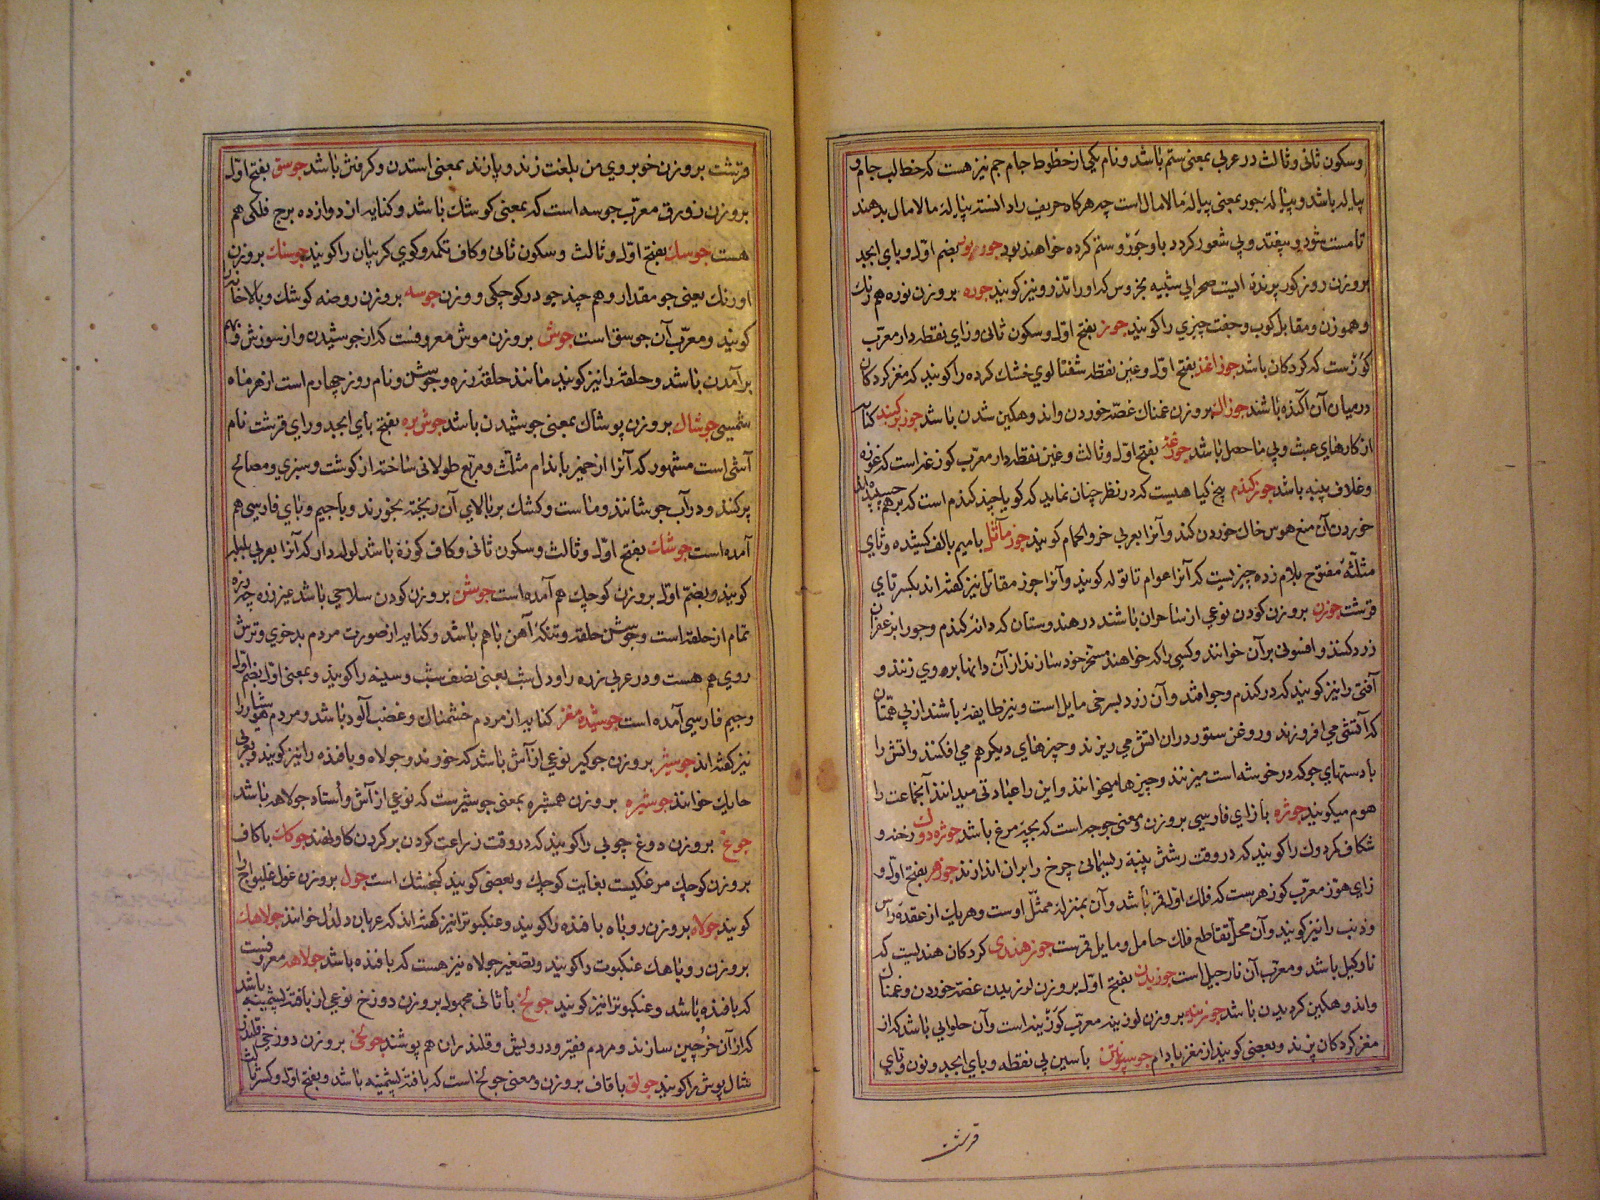 وسکون ثانی و ثالث در عربی بمعنی ستم باشد و نام یکی از خطوط جام جم نیز هست که خط لب جام و
پیاله باشد و پیاله جور بمعنی پیالهٔ مالامال است چه هرکاه حریف را دانسته پیالهٔ مالامال بدهند
تا مست شود و بیفتد و بی شعور کردد با وجور و ستم کرده خواهند بود جورپور بضم اول و بای ابجد
بروزن روزکور پرندهٔ ایست صحرایی شبیه بخروس که او را تذرو نیز کویند جوره بروزن نوره هم رنک
و هموزن و مقابل کوب و جفت چیزی را کویند جوز بفتح اول و سکون ثانی و زای نقطه دار معرب
کوز است که کردکان باشد جوزاغند بفتح اول و غین نقطه شفتالوی خشک کرده را کویند که مغز کردکان
در میان آن آکنده باشند جوزاک بروزن غمناک غصه خوردن و اندوهکین شدن باشد جوز بر کنبد کنایه
از کارهای عبث و بی ما حصل باشد جوزغه بفتح اول و ثالث و غین نقطه دار معرب کوزغه است که غوزه
و غلاف پنبه باشد جوزکندم بیخ کیاهیست که در نظر چنان نماید که کویا چند کندم است که بر هم چسپیده
خوردن آن منع هوس خاک خوردن کند و آنرا بعربی خرو الحمام کویند جوز ماثل با میم بالف کشیده و ثای
مثلثهٔ مفتوح بلام زده چیزیست که آنرا عوام تاتوله کویند و آنرا جوز مقاتل نیز کفته اند بکسر تای
قرشت جوزن بروزن کودن نوعی از ساحران باشند در هندوستان که دانهٔ کندم و جو را بزعفران
زرد کنند و افسونی بر آن خوانند و کسی را که خواهند مسخر خود سازند از آن دانها بر وی زنند و
آفتی را نیز کویند که در کندم و جو افتد و آن زود بسرخی مایل است و نیز طایفه باشند از بی همتان
که آتشی می افروزند و روغن ستور در ان اتش می ریزند و چیزهای دیکر هم می افکنند و اتش را
با دستهای جو که در خوشه است میزنند و چیزها میخوانند و این را عبادتی میدانند آنجماعت را
هوم میکویند جوژه با زای فارسی بروزن و معنی جوجه است که بچهٔ مرغ باشد جوژه دوک رخنه و
شکاف کردوک را کویند که در وقت رشتن پنبه ریسمانی چرخ را بران اندازند جوزهر بفتح اول و
زای هوز معرب کوزهرست که فلک اول قمر باشد و آن بمنزلهٔ ممثل اوست و هر یک از عقدهٔ راس
و ذنب را نیز کویند و آن محل تقاطع فلک حامل و مایل قمرست جوز هندی کردکان هندیست که
نارکیل باشد و معرب آن نارجیل است جوزیدن بفتح اول بروزن لوزیدن غصه خوردن و غمناک
و اندوهکین کردیدن باشد جوزینه بروزن لوزینه معرب کوزینه است و آن حلوایی باشد که از
مغز کردکان پزند و بعضی کویند از مغز بادام جوسپانتن باسین بی نقطه و بای ابجد و نون و تای
قرشت
قرشت بروزن خوبروی من بلغت زند و پازند بمعنی استدن و کرفتن باشد جوسق بفتح اول
بروزن زورق معرب جوسه است که بمعنی کوشک باشد و کنایه از دوازده برج فلکی هم
هست جوسک بفتح اول و ثالث و سکون ثانی و کاف تکمه و کوی کریبان را کویند جوسنک بروزن
اورنک یعنی جو مقدار و هم چند جو در کوچکی و وزن جوسه بروزن روضه کوشک و بالاخانه را
کویند و معرب آن جوسق است جوش بروزن موش معروفست که از جوشیدن و از سوزش و بهم
برآمدن باشد و حلقه را نیز کویند مانند حلقهٔ زره و جوشن و نام روز چهارم است از هر ماه
شمسی جوشاک بروزن پوشاک بمعنی جوشیدن باشد جوش بره بفتح بای ابجد و رای قرشت نام
آشی است مشهور که آنرا از خمیر باندام مثلث و مربع طولانی ساخته از کوشت و سبزی و مصالح
پر کنند و در آب جوشانند و ماست و کشک بر بالای آن ریخته بخورند و با جیم و بای فارسی هم
آمده است جوشک بفتح اول و ثالث و سکون ثانی و کاف کوزهٔ باشد لوله دار که آنرا بعربی بلبله
کویند و بضم اول بروزن کوچک هم آمده است جوشن بروزن کودن سلاحی باشد غیر زره چه زره
تمام از حلقه است و جوشن حلقه و تنکهٔ آهن باهم باشد و کنایه از صورت مردم بدخوی و ترش
روی هم هست و در عربی زده را و دل شب یعنی نصف شب و سینه را کویند و بمعنی اول بضم اول
و جیم فارسی آمده است جوشیده مغز کنایه از مردم خشمناک و غضب آلود باشد و مردم هوشیار را
نیز کفته اند جوشیر بروزن جوکیر نوعی از آش باشد که خورند و جولاه و بافنده را نیز کویند و بعربی
حایک خوانند جوشیره بروزن همشیره بمعنی جوشیرست که نوعی از آش و استاد جولاهه باشد
جوغ بروزن دوغ چوبی را کویند که در وقت زراعت کردن بر کردن کاو نهند جوکک با کاف
بروزن کوچک مرغکیست بغایت کوچک و بعضی کویند کنجشک است جول بروزن غول غلیواج را
کویند جولاه بروزن روباه بافنده را کویند و عنکبوت را نیز کفته اند که عربان دلدل خوانند جولاهک
بروزن روباهک عنکبوت را کویند و تصغیر جولاه نیز هست که بافنده باشد جولاهه معروفست
که بافنده باشد و عنکبوت را نیز کویند جولخ با ثانی مجهول بروزن دوزخ نوعی از بافتهٔ پشمینه باشد
که از آن خرجین سازند و مردم فقیر و درویش و قلندران هم پوشند جولخی بروزن دوزخی قلندر
شال پوش را کویند جولق با قاف بروزن و معنی جولخ است که بافتهٔ پشمینه باشد و بفتح اول و کسر ثالث